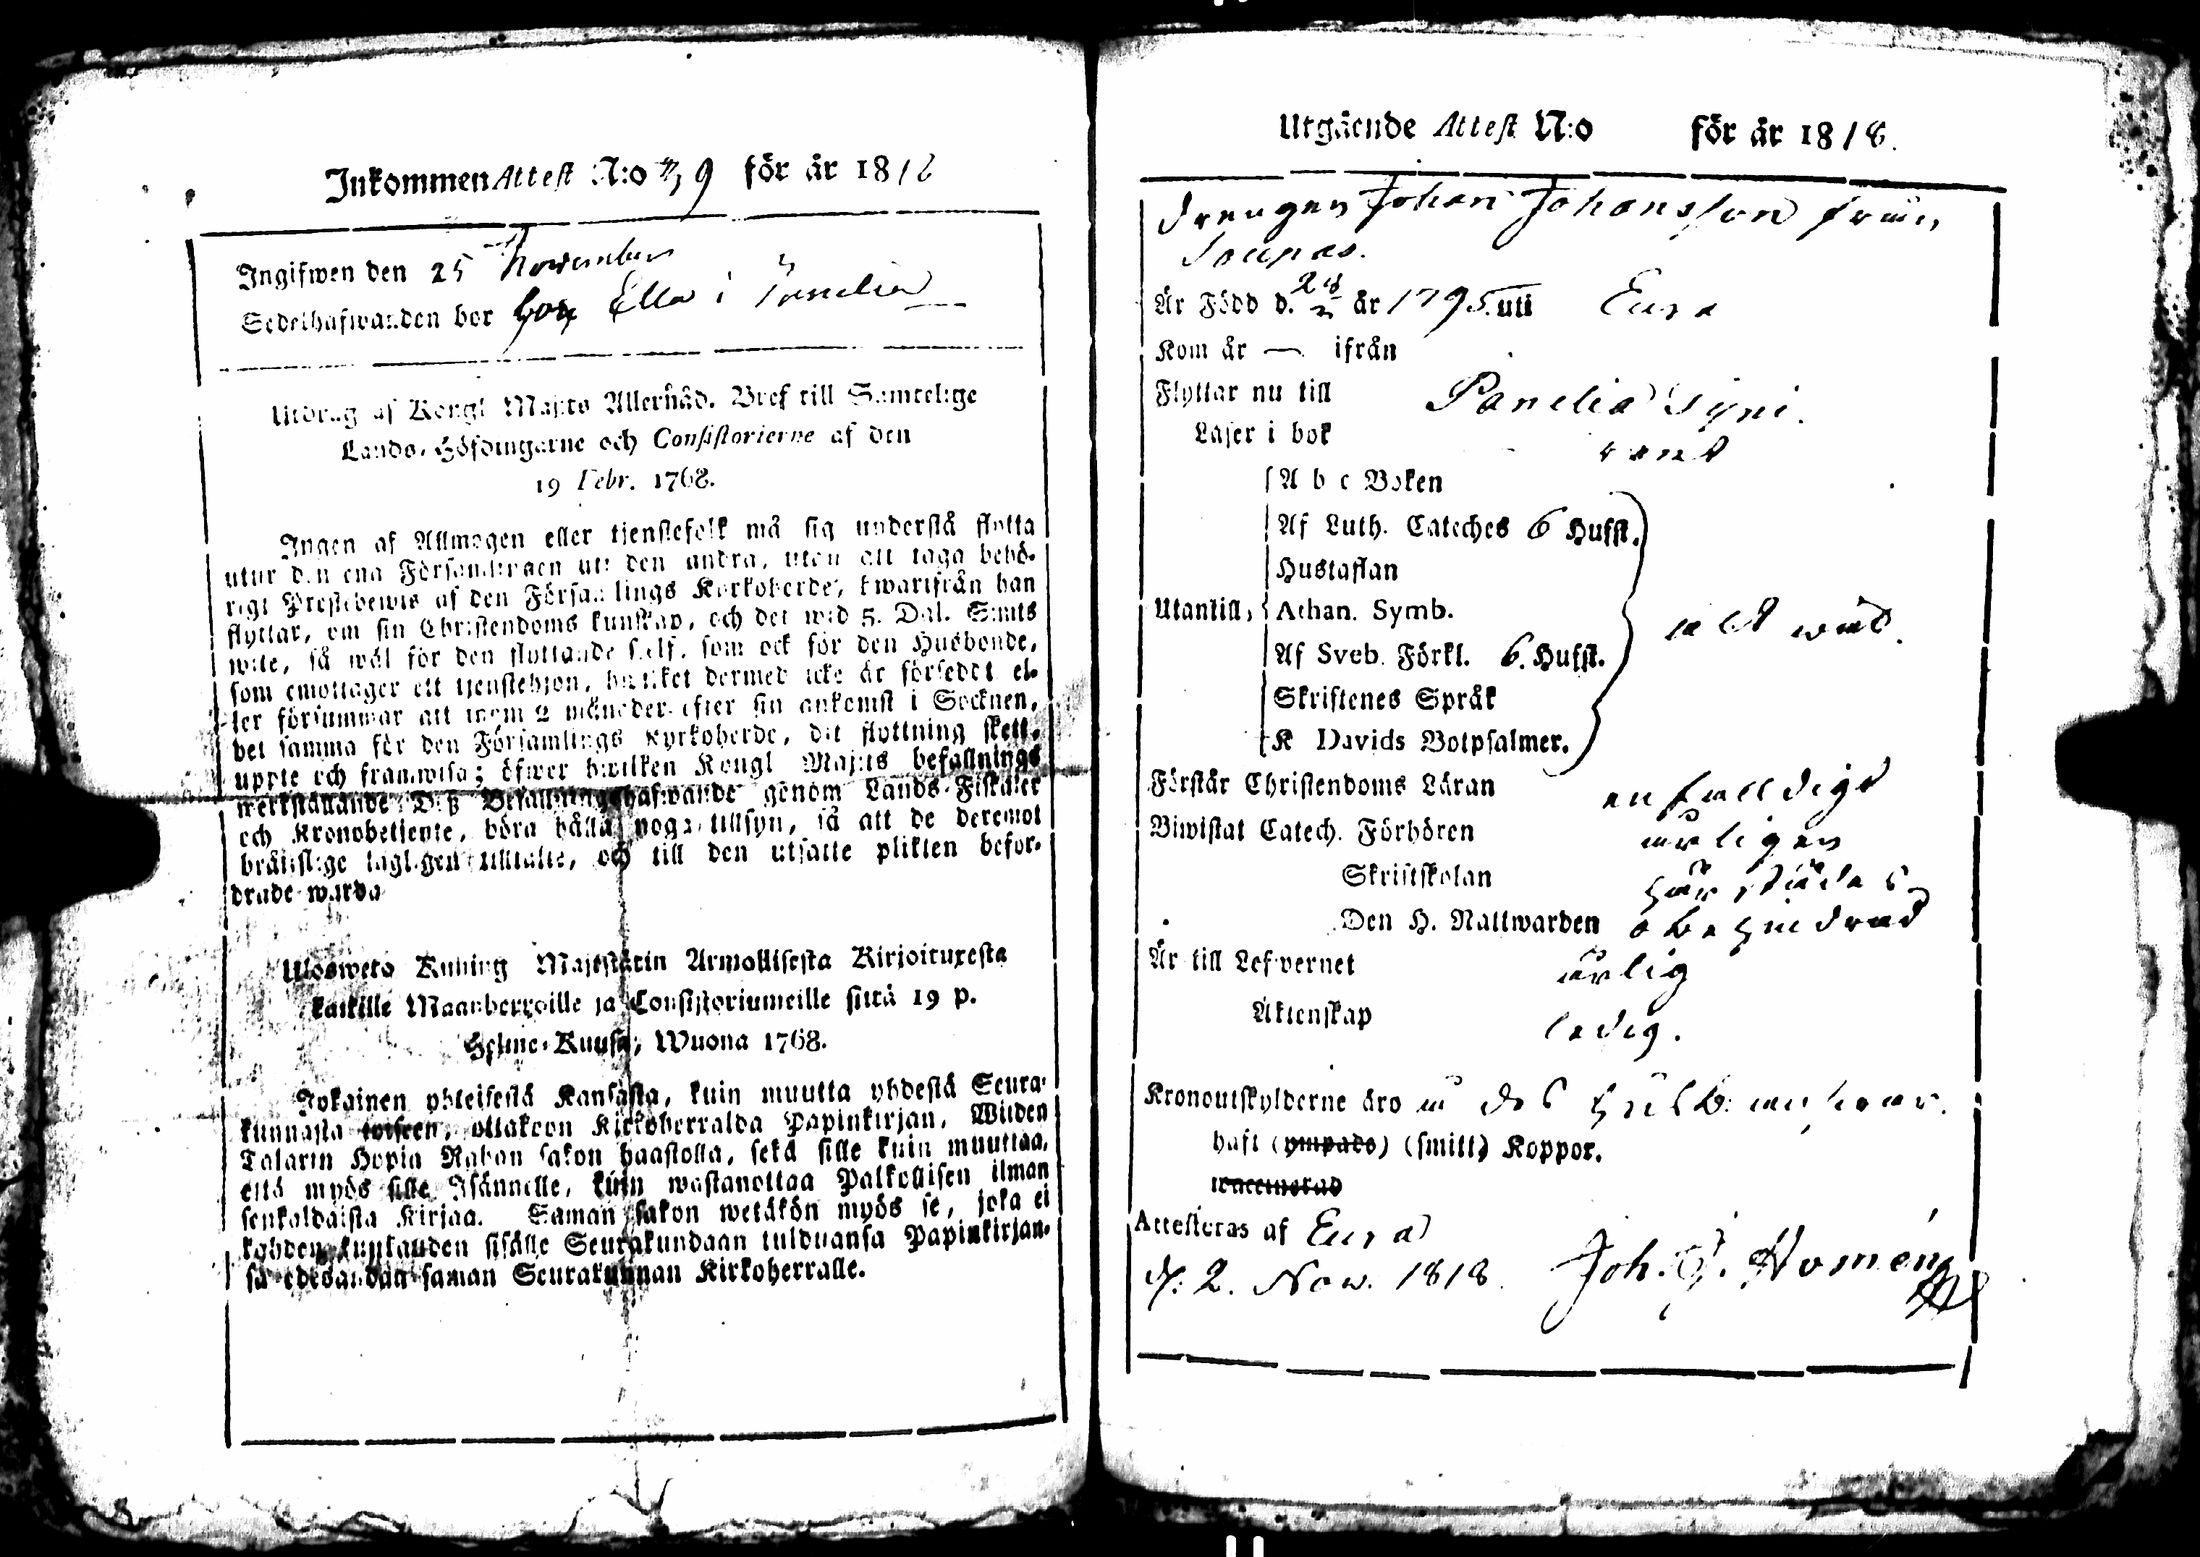 Inkommen Attest N:o 39 för år 1818
Ingifwen den 25 November
Sedelhafwanden bor hos Ella i Panelia
Utdrag af Kongl Maj:ts Allernåd. Bref till Samtelige
Lands-Höfdingarne och Consistorierne af den
19 Febr. 1768.
Ingen af Allmogen eller tjenstefolk må sig understå flytta
utur den ena Församlingen uti den andra, utan att taga behö-
rigt Prestebewis af den Församlings Kyrkoherde, hwarifrån han
flyttar, om sin Christendoms kunskap, och det wid 5. Dal. S:mts
wite, så wäl för den flyttande sielf, som ock för den Husbonde,
som emottager ett tjenstehjon, hwilket dermed icke är försedt el-
ler försummar att inom 2 månader efter sin ankomst i Socknen,
det samma för den Församlings Kyrkoherde, dit flyttning skett,
uppte och framwisa; öfwer hwilken Kongl Maj:ts befallnings
werkställande Deß Befallningshafwande genom Lands-Fiskaler
och Kronobetjente, böra hålla noga tillsyn, så att de deremot
bråtslige lagligen tilltalte, och till den utsatte plikten befor-
drade warda
Ulosweto Kuning Majestätin Armollisesta Kirjoituxesta
kaikille Maanherroille ja Consistoriumeille siitä 19 p.
Helme-Kuusa, Wuona 1768.
Jokainen yhteisestä Kansasta, kuin muutta yhdestä Seura-
kunnasta toiseen, ottakoon Kirkoherralda Papinkirjan, Wiiden
Talarin Hopia Rahan sakon haastolla, sekä sille kuin muuttaa,
että myös sille Isännälle, kuin wastanottaa Palkollisen ilman
senkaldaista Kirjaa. Saman sakon wetäkön myös se, joka ei
kahden kuukauden sisälle Seurakundaan tulduansa Papinkirjan-
sa edesandaa saman Seurakunnan Kirkoherralle.
Utgående Attest N:o för år 1818.
Drengen Johan Johansson från
Soupas.
Är Född d. 28/2 år 1795. uti Eura
Kom år — ifrån
Flyttar nu till Panelia Syni.
Läser i bok rent
A b c Boken
Af Luth. Cateches 6 Hufst.
Hustaflan
Utantill, Athan. Symb. alt wäl.
Af Sveb. Förkl. 6. Hufst.
Skriftenes Språk
K Davids Botpsalmer.
Förstår Christendoms Läran enfalldigt
Biwistat Catech. Förhören årligen
Skriftskolan här städes
Den H. Nattwarden obehindrad
Är till Lefwernet ärlig
Äktenskap ledig.
Kronoutskylderne äro
haft (ympade) (smitt) Koppor.
waccinerad
Attesteras af Eura
d. 2. Nov. 1818. Joh. G. Homén